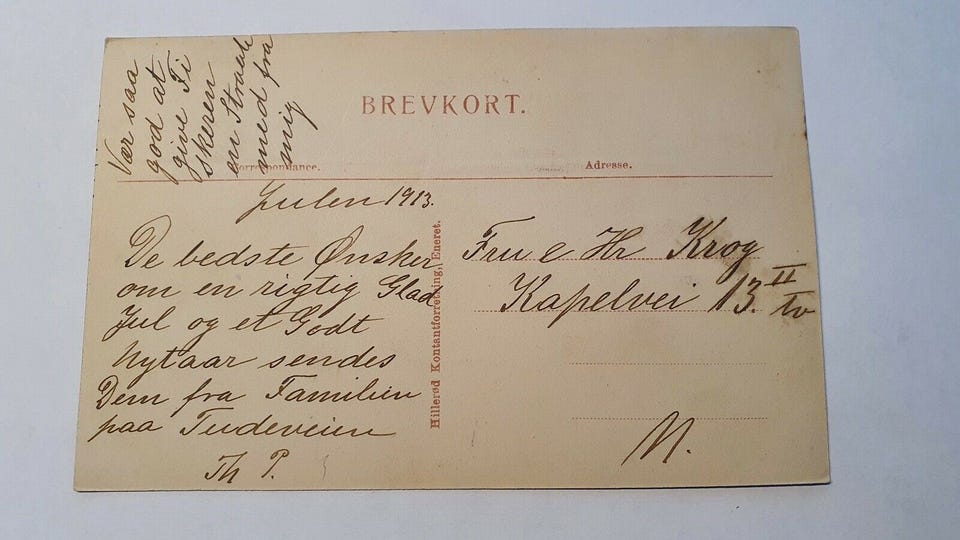 Vær saa
god at
give Fi
skeren
en Straale
med fra
mig
BREVKORT.
Correspondance.
Adresse.
Julen 1913.
De bedste Ønsker
om en rigtig Glad
Jul og et Godt
Nytaar sendes
Dem fra Familien
paa Tudeveien
Th P.
Hillerød Kontantforretning, Eneret.
Fru e Hr Krog
Kapelvei 13. II
tv
N.